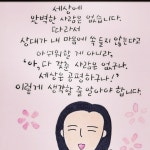 세상에
완벽한 사람은 없습니다.
따라서
상대가 내 마음에 쏙 들지 않는다고
아쉬워할 게 아니라,
'아, 다 갖춘 사람은 없구나.
세상은 공평하구나!'
이렇게 생각할 줄 알아야 합니다.